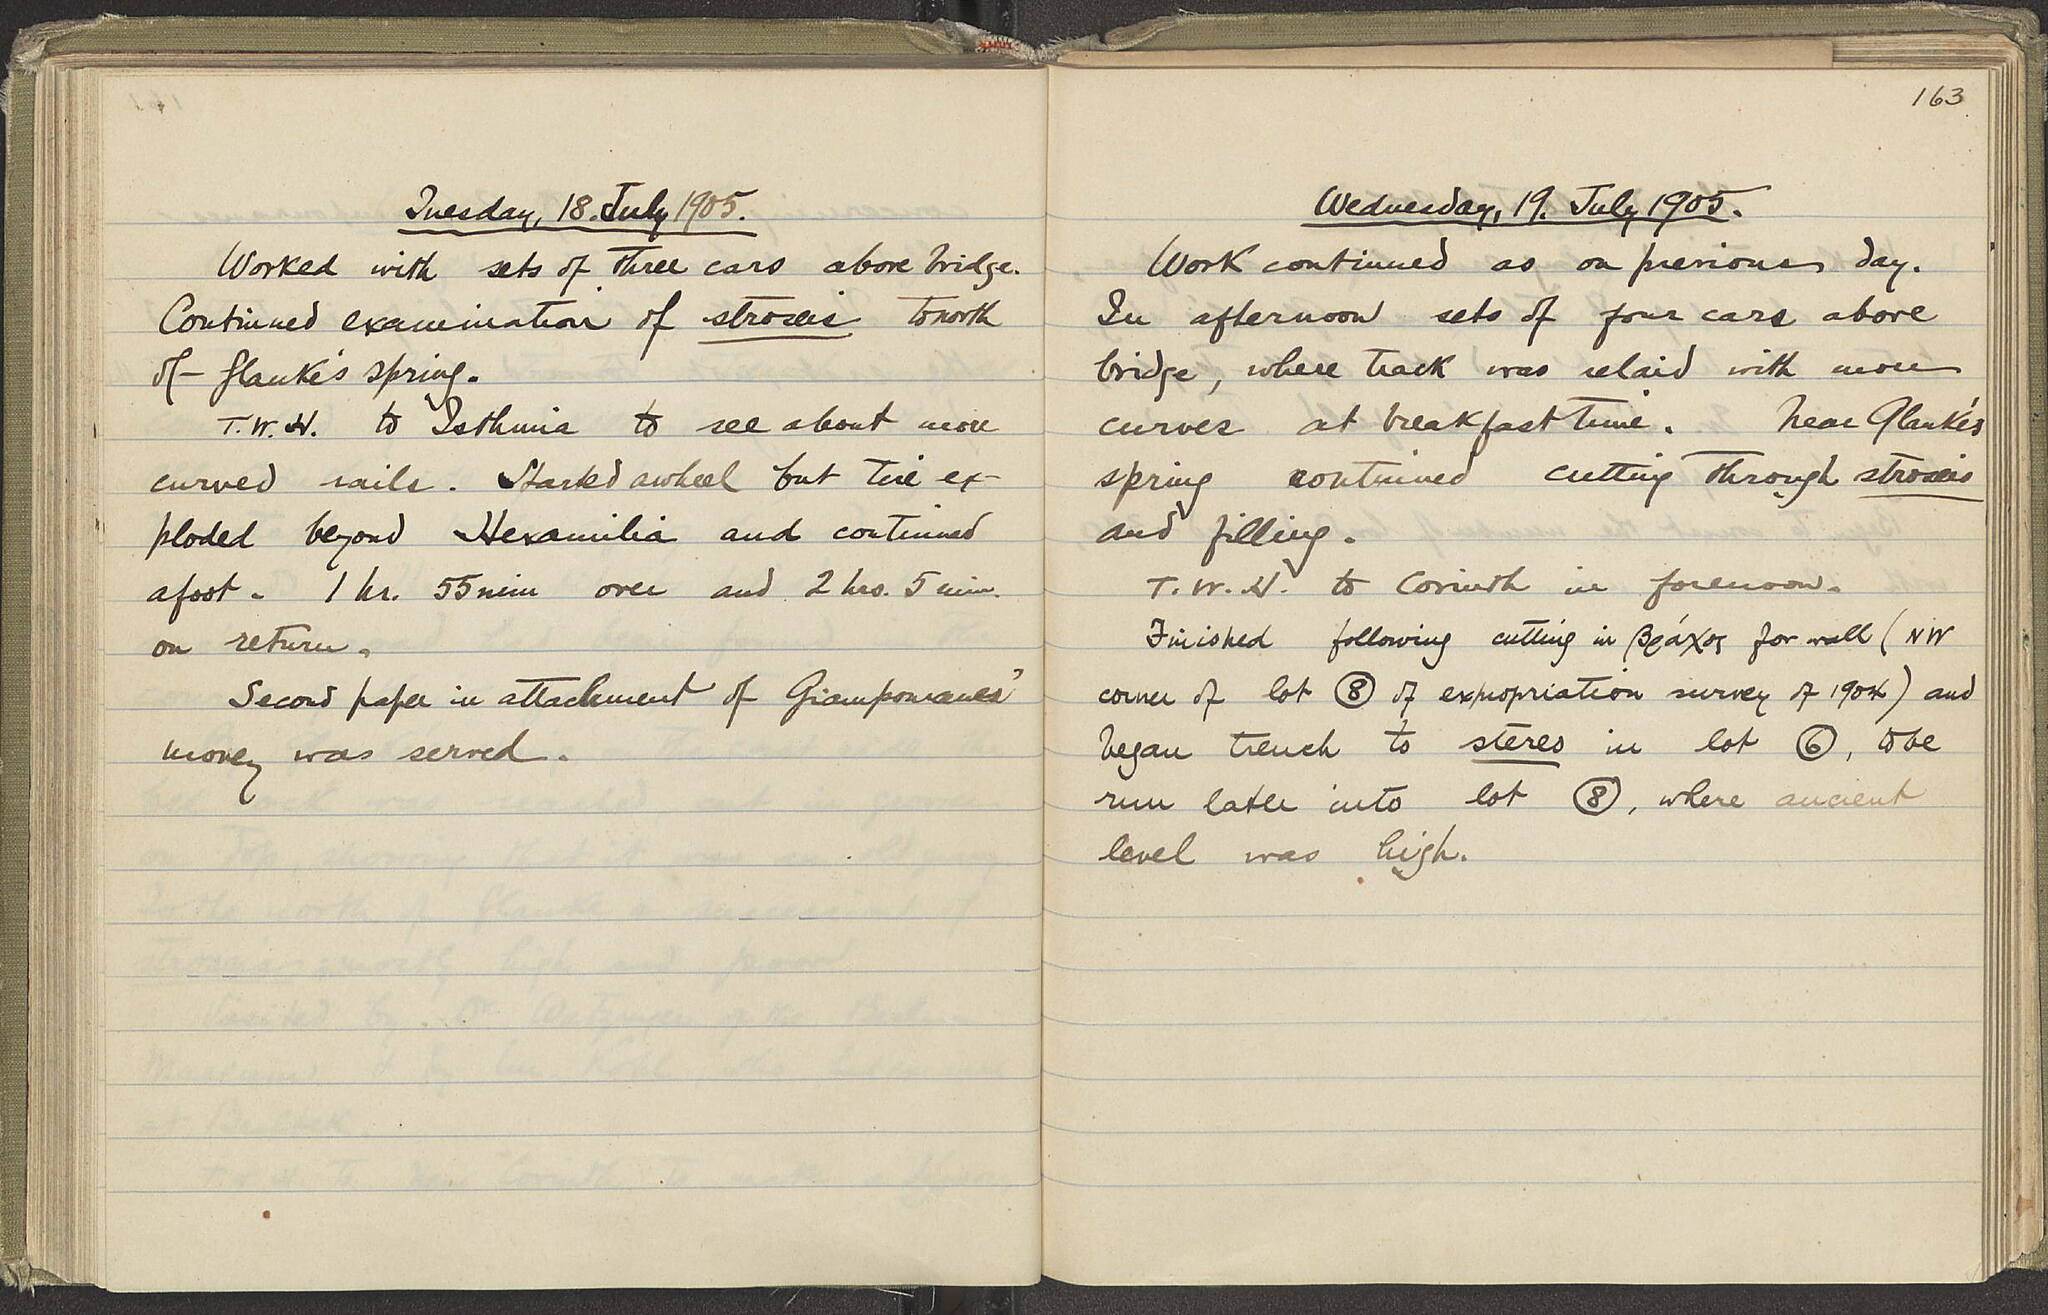 Tuesday, 18. July 1905.
Worked with sets of three cars above bridge.
Continued examination of stroseis to north
of Glauke's spring.
T. W. H. to Isthmia to see about more
curved rails. Started awheel but tire ex-
ploded beyond Hexamilia and continued
afoot. 1 hr. 55 min over and 2 hrs. 5 min.
on return.
Second paper in attachment of Giampouranes'
money was served.
163
Wednesday, 19. July 1905.
Work continued as on previous day.
In afternoon sets of four cars above
bridge, where track was relaid with more
curves at breakfast time. Near Glauke's
spring continued cutting through stroseis
and filling.
T. W. H. to Corinth in forenoon.
Finished following cutting in βράχος for wall (NW
corner of lot ⑧ of expropriation survey of 1904) and
began trench to stereo in lot ⑥, to be
run later into lot ⑧, where ancient
level was high.